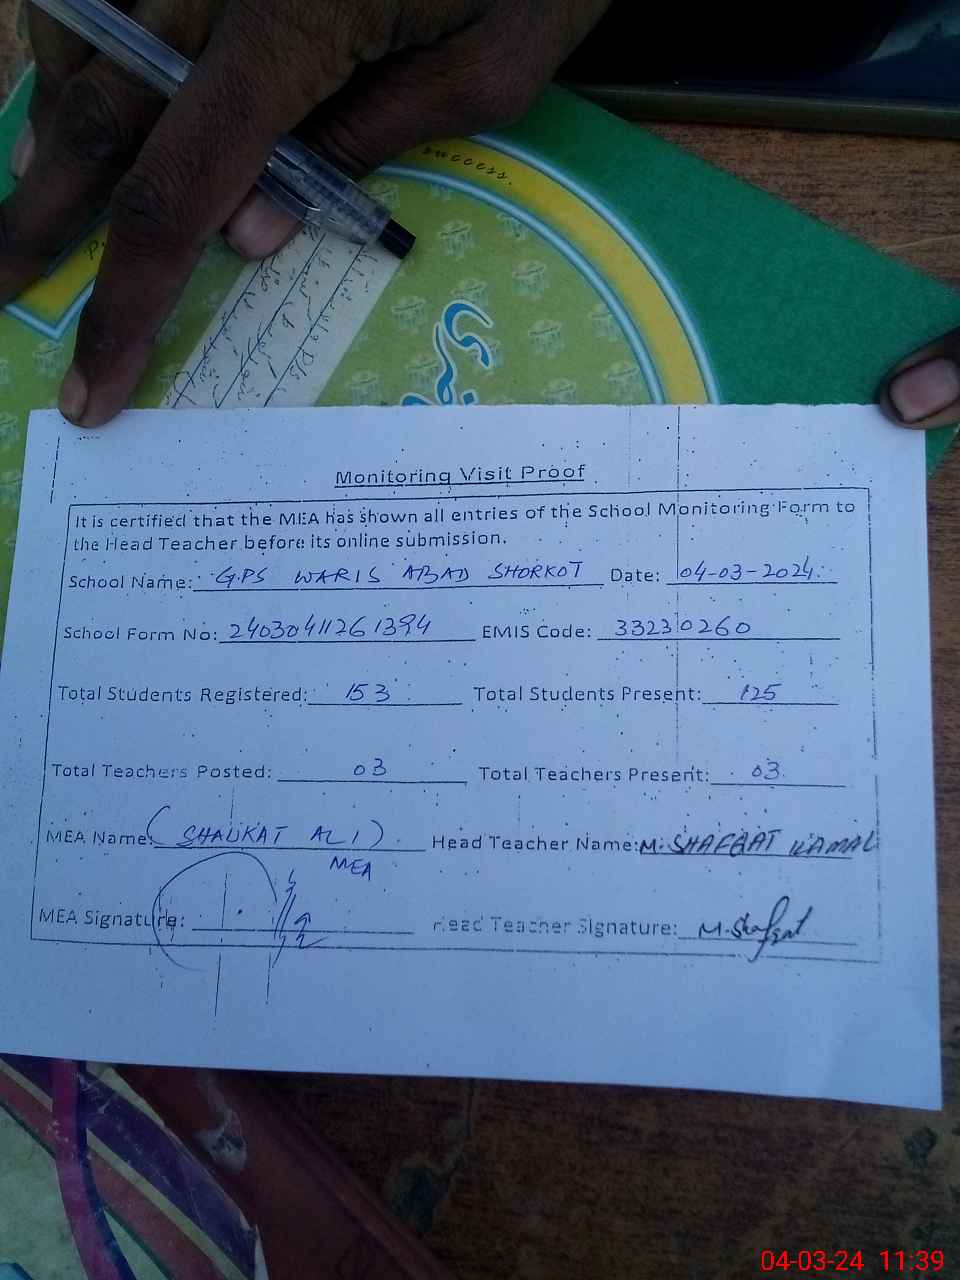 success.
Monitoring Visit Proof
It is certified that the MEA has shown all entries of the School Monitoring Form to
the Head Teacher before its online submission.
School Name: G.P.S WARIS ABAD SHORKOT Date: 04-03-2024.
School Form No: 24030411261394 EMIS Code: 33230260
Total Students Registered: 153 Total Students Present: 125
Total Teachers Posted: 03 Total Teachers Present: 03
MEA Name: (SHAUKAT ALI) Head Teacher Name: M. SHAFAAT KAMAL
MEA
MEA Signature: Head Teacher Signature: M. Shafaat
04-03-24 11:39